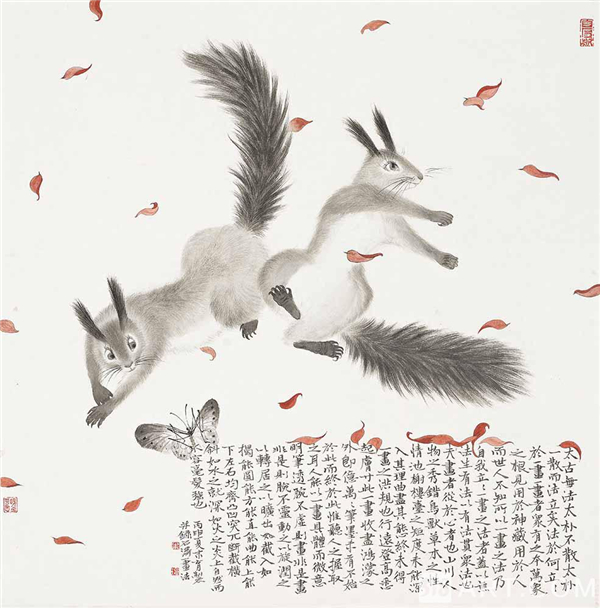 太古無法太朴不散太朴
一散而法立矣法於何立
於一畫畫者眾有之本萬象
之根見用於神藏用於人
而世人不知所以一畫之法乃
自我立一畫之法者蓋以無
法生有法以有法貫眾法也
夫畫者從於心者也山川人
物之秀錯鳥獸草木之性
情池榭樓臺之矩度未能深
入其理曲盡其態終未得
一畫之洪規也行遠登高悉
起膚寸此一畫收盡鴻濛之
外即億萬萬筆墨未有不始
於此而終於此惟聽人之握取
之耳人能以一畫具體而微意
明筆透腕不虛則畫非是畫
非是則腕不靈動之以旋潤之
以轉居之以曠出如截入如
揭能圓能方能直能曲能上能
下左右均齊凸凹突兀斷截橫
斜如水之就深如火之炎上自然而
不容毫髮強也
錄石濤畫語